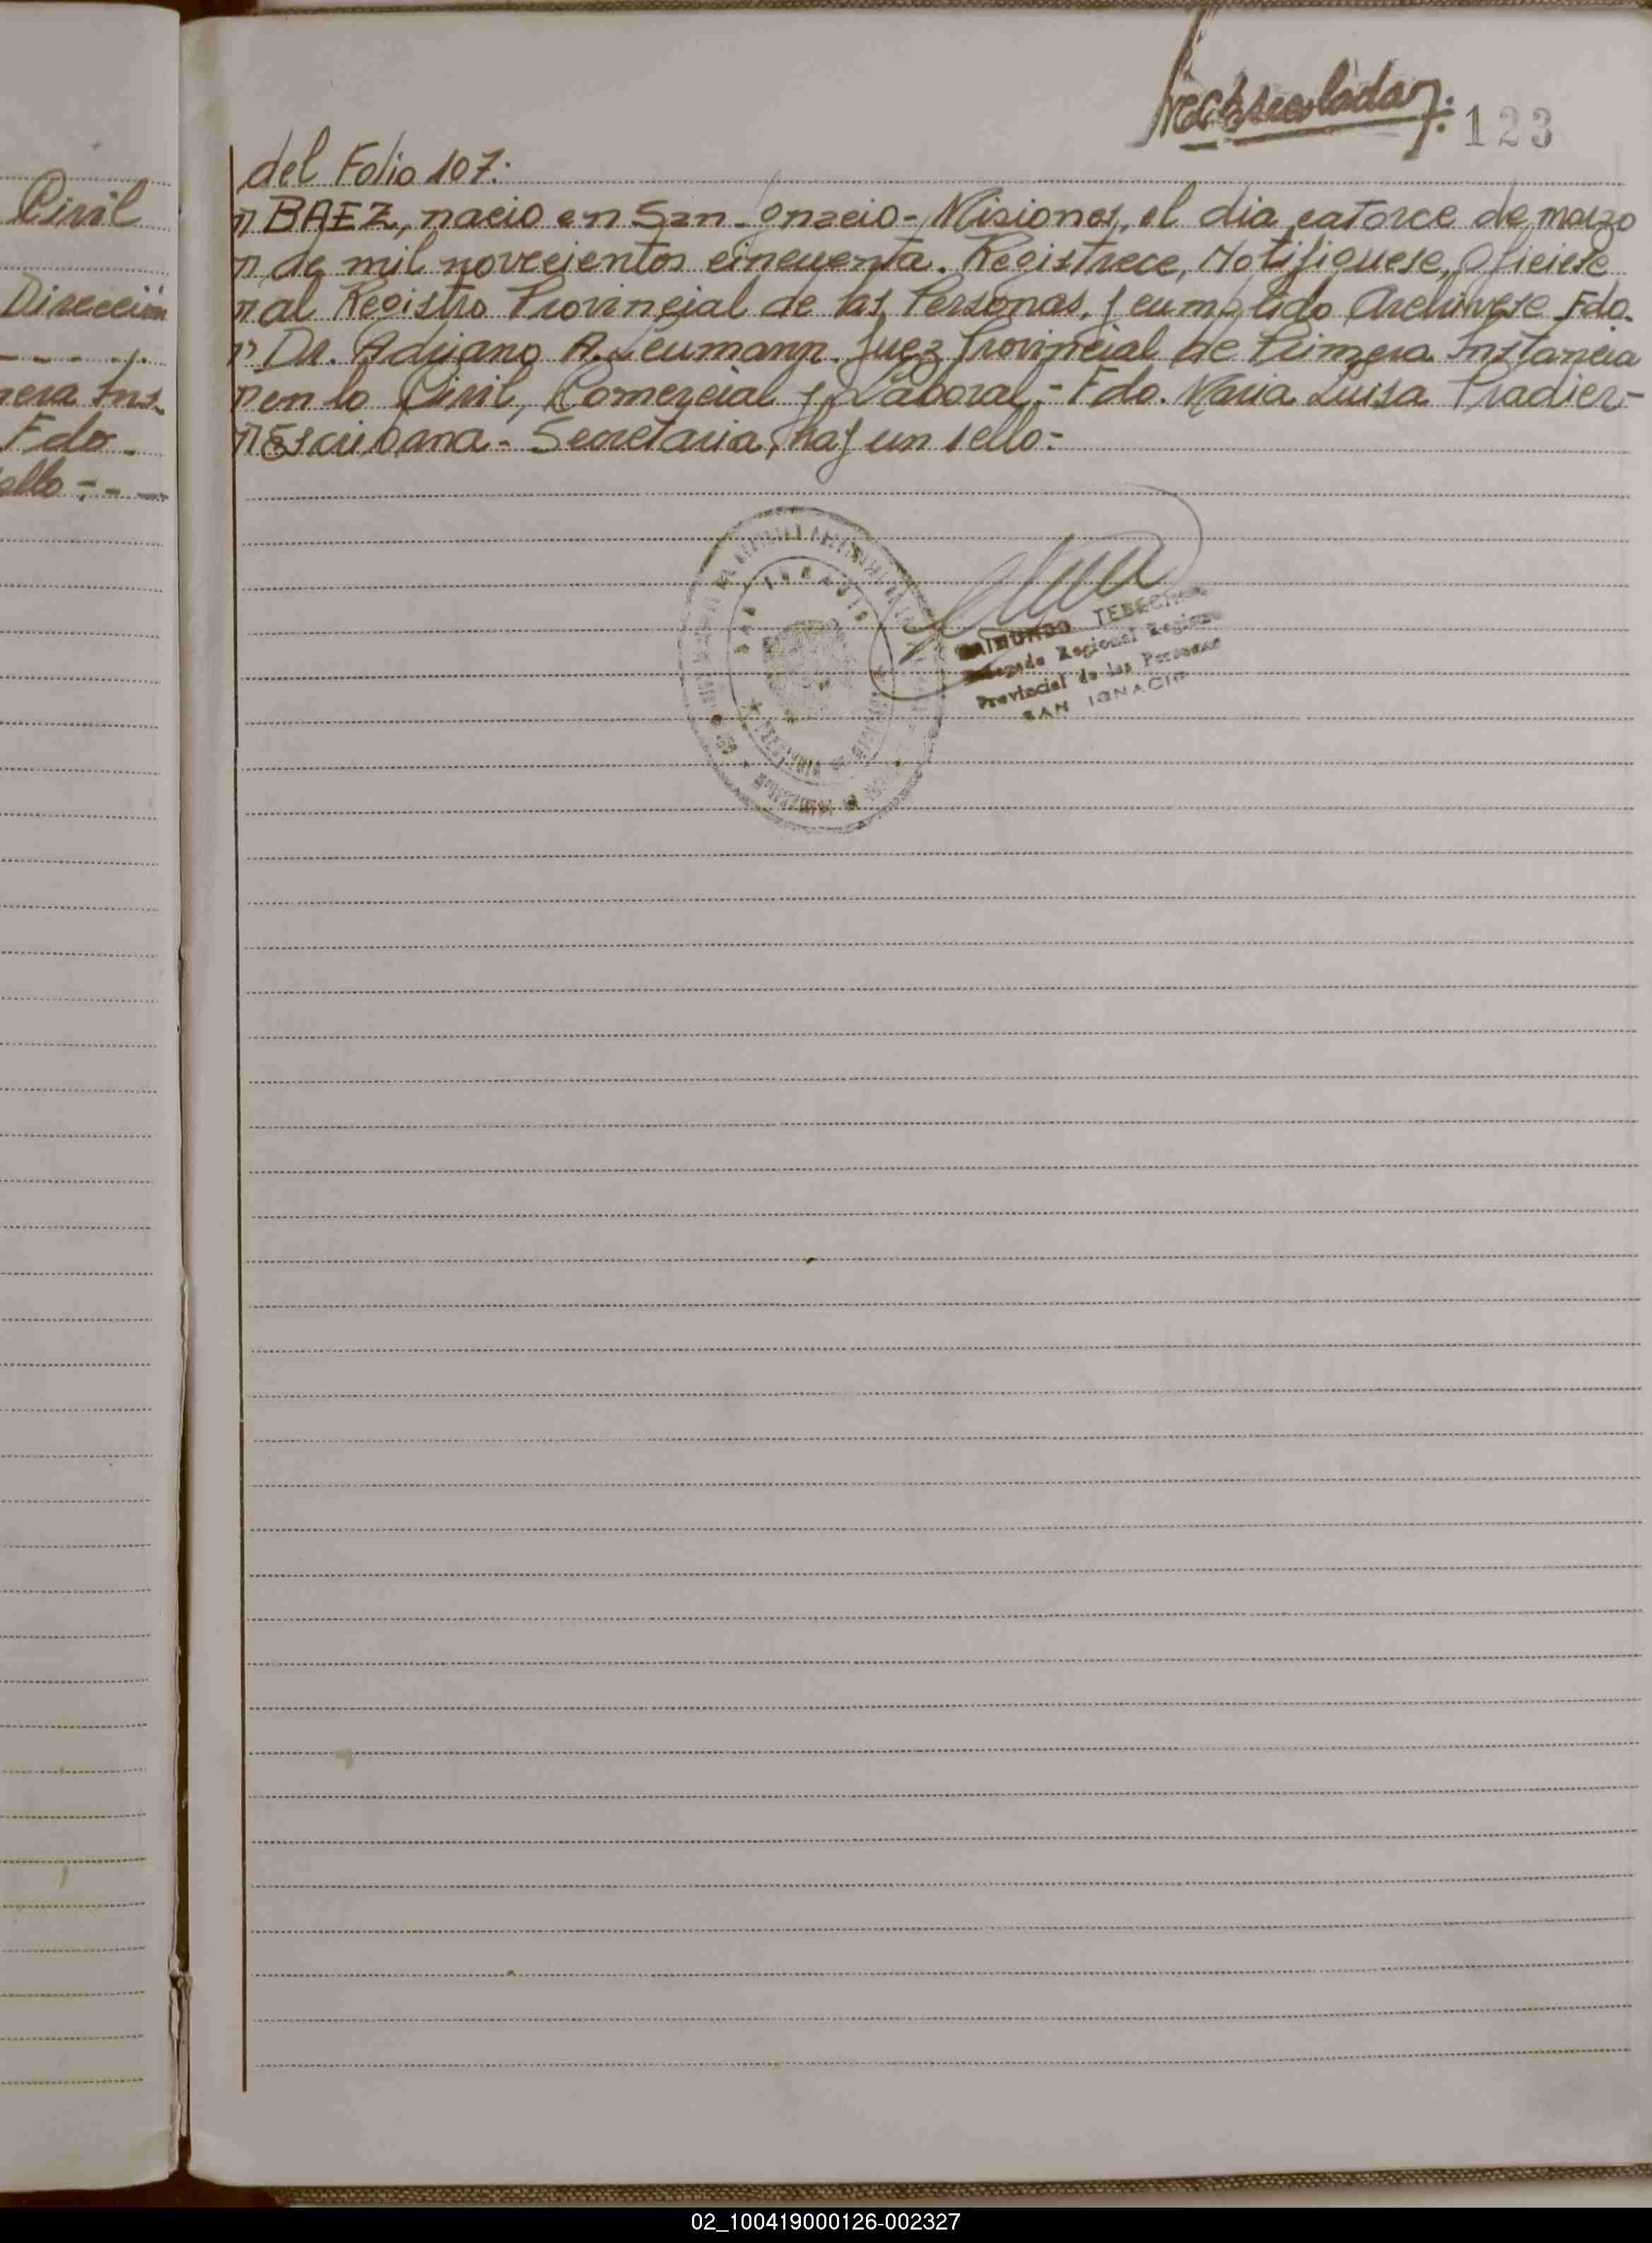 Civil
Dirección
- - - ./.
mera Ins-
Fdo -
sello - - -
123
del Folio 107:
" BAEZ, nacio en San Ignacio - Misiones, el dia catorce de marzo
" de mil novecientos cincuenta. Registrece, Notifiquese, Oficiese
" al Registro Provincial de las Personas, y cumplido Archivese Fdo.
" Dr. Adriano A. Leumann. Juez Provincial de Primera Instancia
" en lo Civil, Comercial y Laboral. - Fdo. Maria Luisa Pradier -
" Escribana - Secretaria, hay un sello -
SAN IGNACIO
RAIMUNDO
Delegado Regional Registro
Provincial de las Personas
SAN IGNACIO
02_100419000126-002327